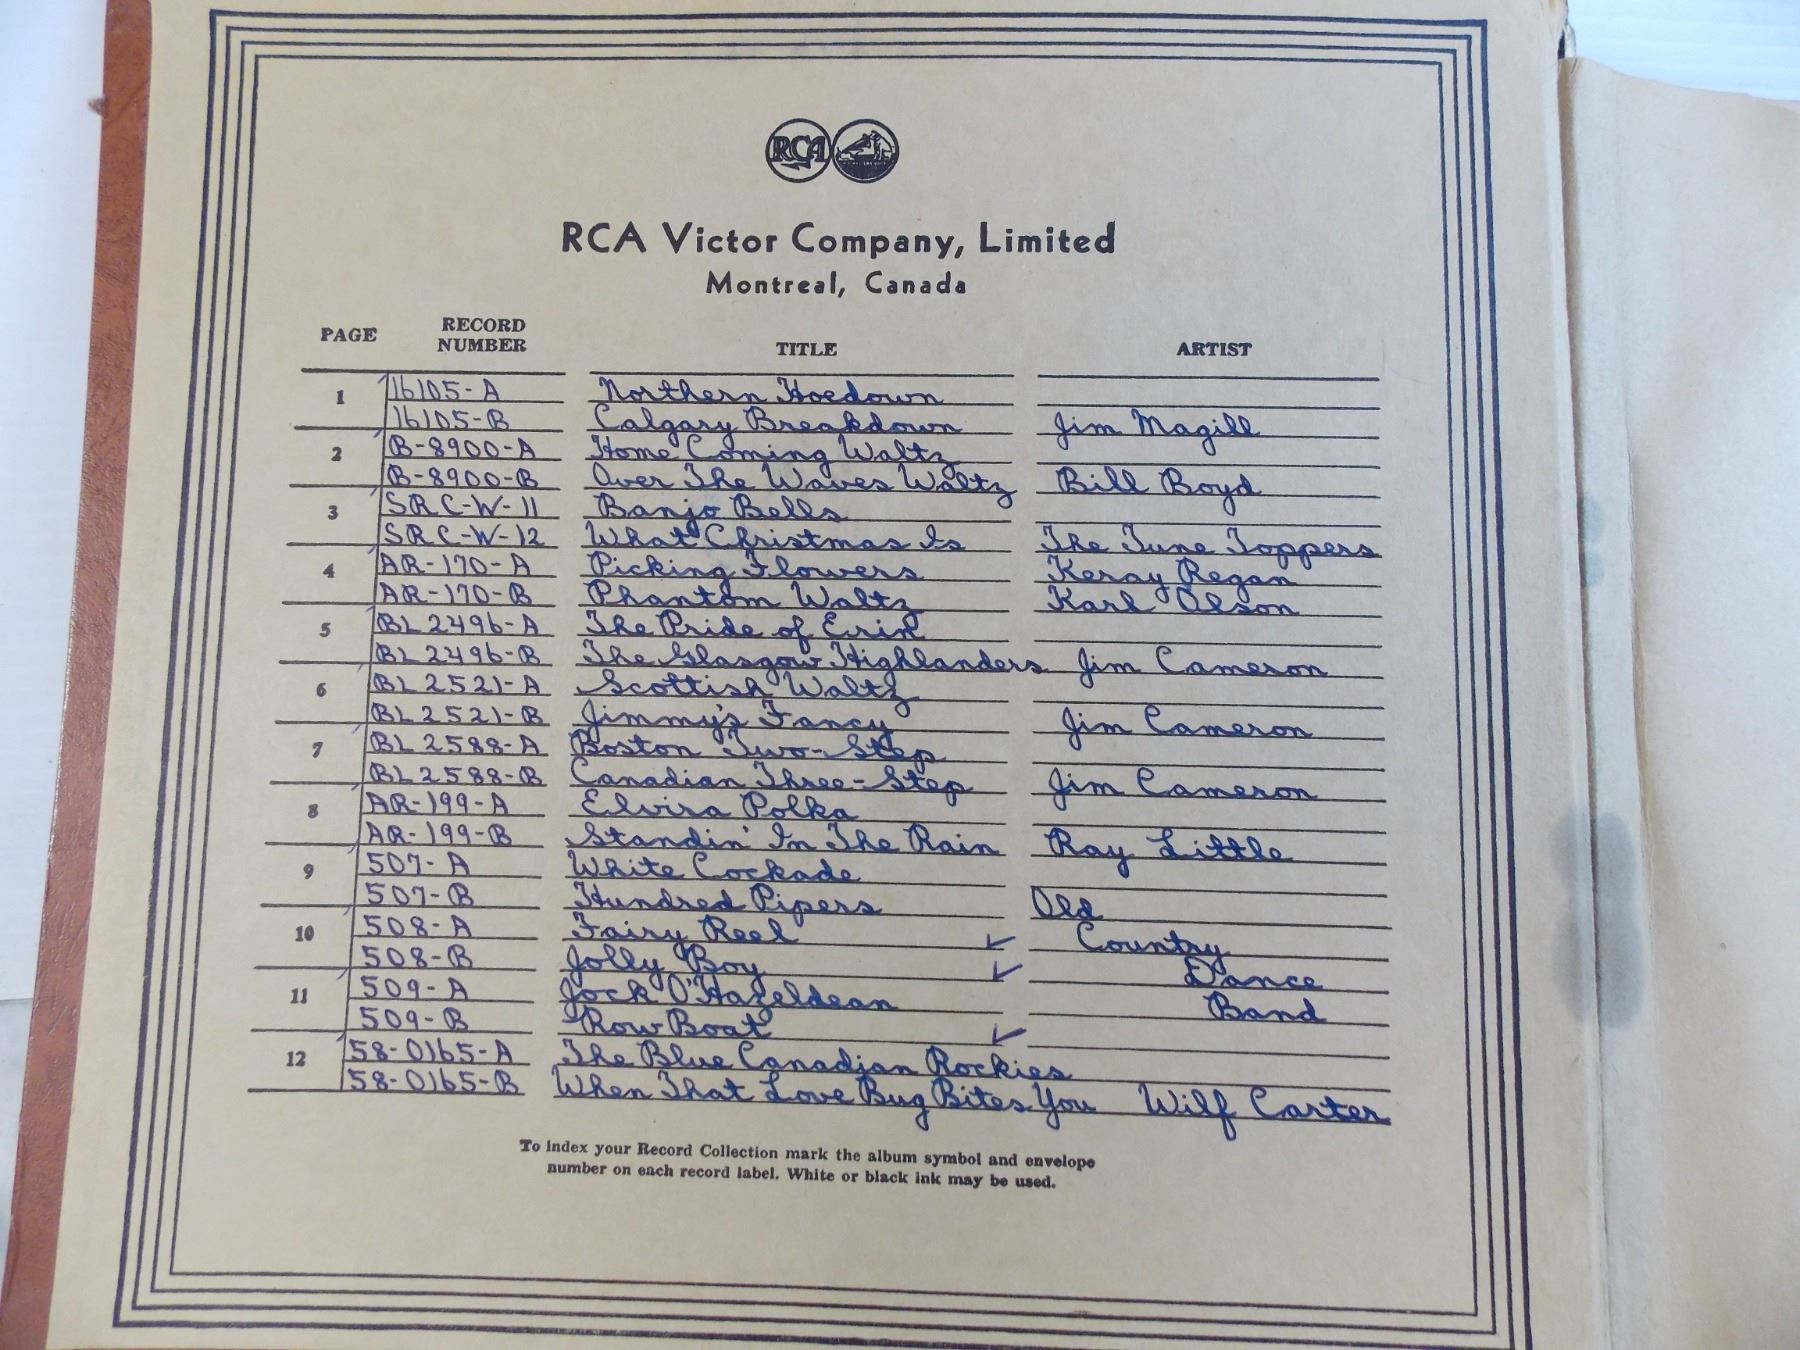 RCA
RCA Victor Company, Limited
Montreal, Canada
PAGE RECORD NUMBER TITLE ARTIST
1 16105-A Northern Hoedown
16105-B Calgary Breakdown Jim Magill
2 B-8900-A Home Coming Waltz
B-8900-B Over The Waves Waltz Bill Boyd
3 SRC-W-11 Banjo Bells
SRC-W-12 What Christmas Is The Tune Toppers
4 AR-170-A Picking Flowers Keray Regan
AR-170-B Phantom Waltz Karl Olson
5 BL2496-A The Pride of Erin
BL2496-B The Glasgow Highlanders Jim Cameron
6 BL2521-A Scottish Waltz
BL2521-B Jimmy's Fancy Jim Cameron
7 BL2588-A Boston Two-Step
BL2588-B Canadian Three-Step Jim Cameron
8 AR-199-A Elvira Polka
AR-199-B Standin' In The Rain Ray Little
9 507-A White Cockade
507-B Hundred Pipers Old
10 508-A Fairy Reel Country
508-B Jolly Boy Dance
11 509-A Jock O'Hazeldean Band
509-B Row Boat
12 58-0165-A The Blue Canadian Rockies
58-0165-B When That Love Bug Bites You Wilf Carter
To index your Record Collection mark the album symbol and envelope
number on each record label. White or black ink may be used.